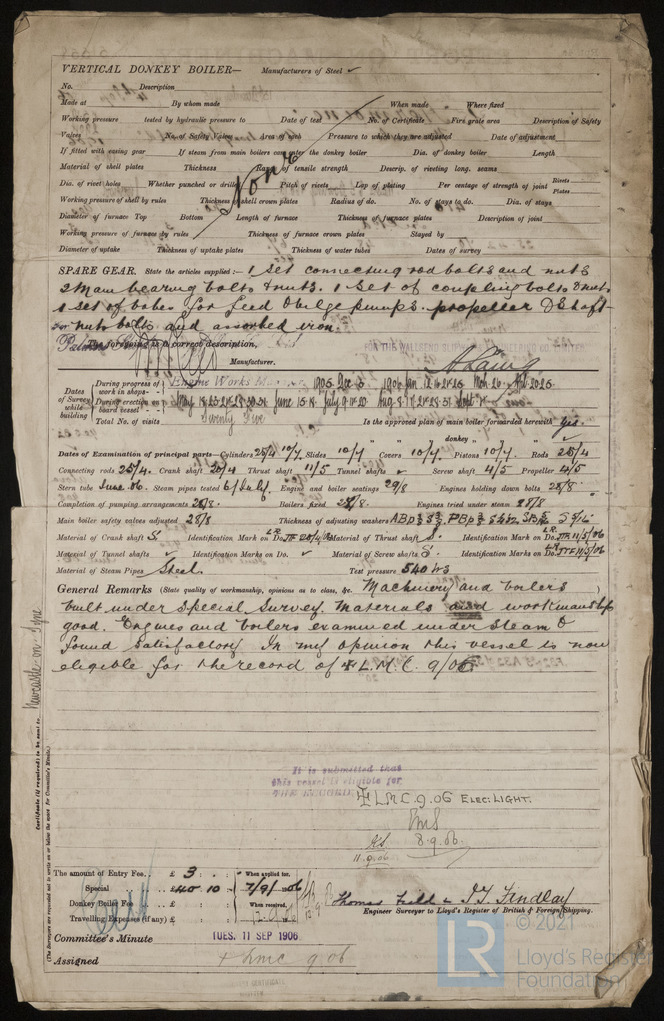 VERTICAL DONKEY BOILER— Manufacturers of Steel
No. Description
Made at By whom made When made Where fixed
Working pressure tested by hydraulic pressure to Date of test No. of Certificate Fire grate area Description of Safety
Valves No. of Safety Valves Area of each Pressure to which they are adjusted Date of adjustment
If fitted with easing gear If steam from main boilers can enter the donkey boiler Dia. of donkey boiler Length
Material of shell plates Thickness Range of tensile strength Descrip. of riveting long. seams
None
Dia. of rivet holes Whether punched or drilled Pitch of rivets Lap of plating Per centage of strength of joint Rivets Plates
Working pressure of shell by rules Thickness of shell crown plates Radius of do. No. of stays to do. Dia. of stays
Diameter of furnace Top Bottom Length of furnace Thickness of furnace plates Description of joint
Working pressure of furnace by rules Thickness of furnace crown plates Stayed by
Diameter of uptake Thickness of uptake plates Thickness of water tubes Dates of survey
SPARE GEAR. State the articles supplied:— 1 set connecting rod bolts and nuts
2 Main bearing bolts & nuts. 1 set of coupling bolts & nuts
1 set of valves for feed & bilge pumps. propeller & shaft
nuts bolts and assorted iron.
The foregoing is a correct description,
FOR THE WALLSEND SLIPWAY
Manufacturer.
Dates of Survey while building
During progress of work in shops - - 1905 Dec 5 1906 Jan 12 16 24 26 Mch 26 Apl 20 25
During erection on board vessel - - - May 18 23 June 15 18 July 9 17 20 Aug
Total No. of visits Twenty Five Is the approved plan of main boiler forwarded herewith Yes.
" " " donkey " " "
Dates of Examination of principal parts—Cylinders 25/4 10/7 Slides 10/7 Covers 10/7 Pistons 10/7 Rods 25/4
Connecting rods 25/4. Crank shaft 20/4 Thrust shaft 11/5 Tunnel shafts Screw shaft 4/5 Propeller 4/5
Stern tube June 06. Steam pipes tested Engine and boiler seatings 29/8 Engines holding down bolts 28/8
Completion of pumping arrangements 28/8 Boilers fixed 28/8 Engines tried under steam 28/8
Main boiler safety valves adjusted 28/8 Thickness of adjusting washers
Material of Crank shaft S. Identification Mark on Do. Material of Thrust shaft S. Identification Mark on Do. 11/5/06
Material of Tunnel shafts Identification Marks on Do. Material of Screw shafts S. Identification Marks on Do. 11/5/06
Material of Steam Pipes Steel. Test pressure 540 lbs
General Remarks (State quality of workmanship, opinions as to class, &c. Machinery and boilers
built under Special Survey. Materials and workmanship
good. Engines and boilers examined under steam &
found satisfactory. In my opinion this vessel is now
eligible for the record of ✠ L.M.C. 9/06.
Newcastle on Tyne
Certificate (if required) to be sent to
(The Surveyors are requested not to write on or below the space for Committee's Minute.)
It is submitted that
this vessel is eligible for
THE RECORD
✠ LMC. 9.06 ELEC: LIGHT.
8.9.06.
11.9.06
The amount of Entry Fee.. £ 3 : : When applied for.
Special .. .. £ 40 : 10 : 7/9/06
Donkey Boiler Fee .. £ : : When received,
Travelling Expenses (if any) £ : :
Thomas Field & J.T. Findlay
Engineer Surveyor to Lloyd's Register of British & Foreign Shipping.
Committee's Minute TUES. 11 SEP 1906
Assigned + Lmc 9 06
© 2021
LR
Lloyd's Register
Foundation